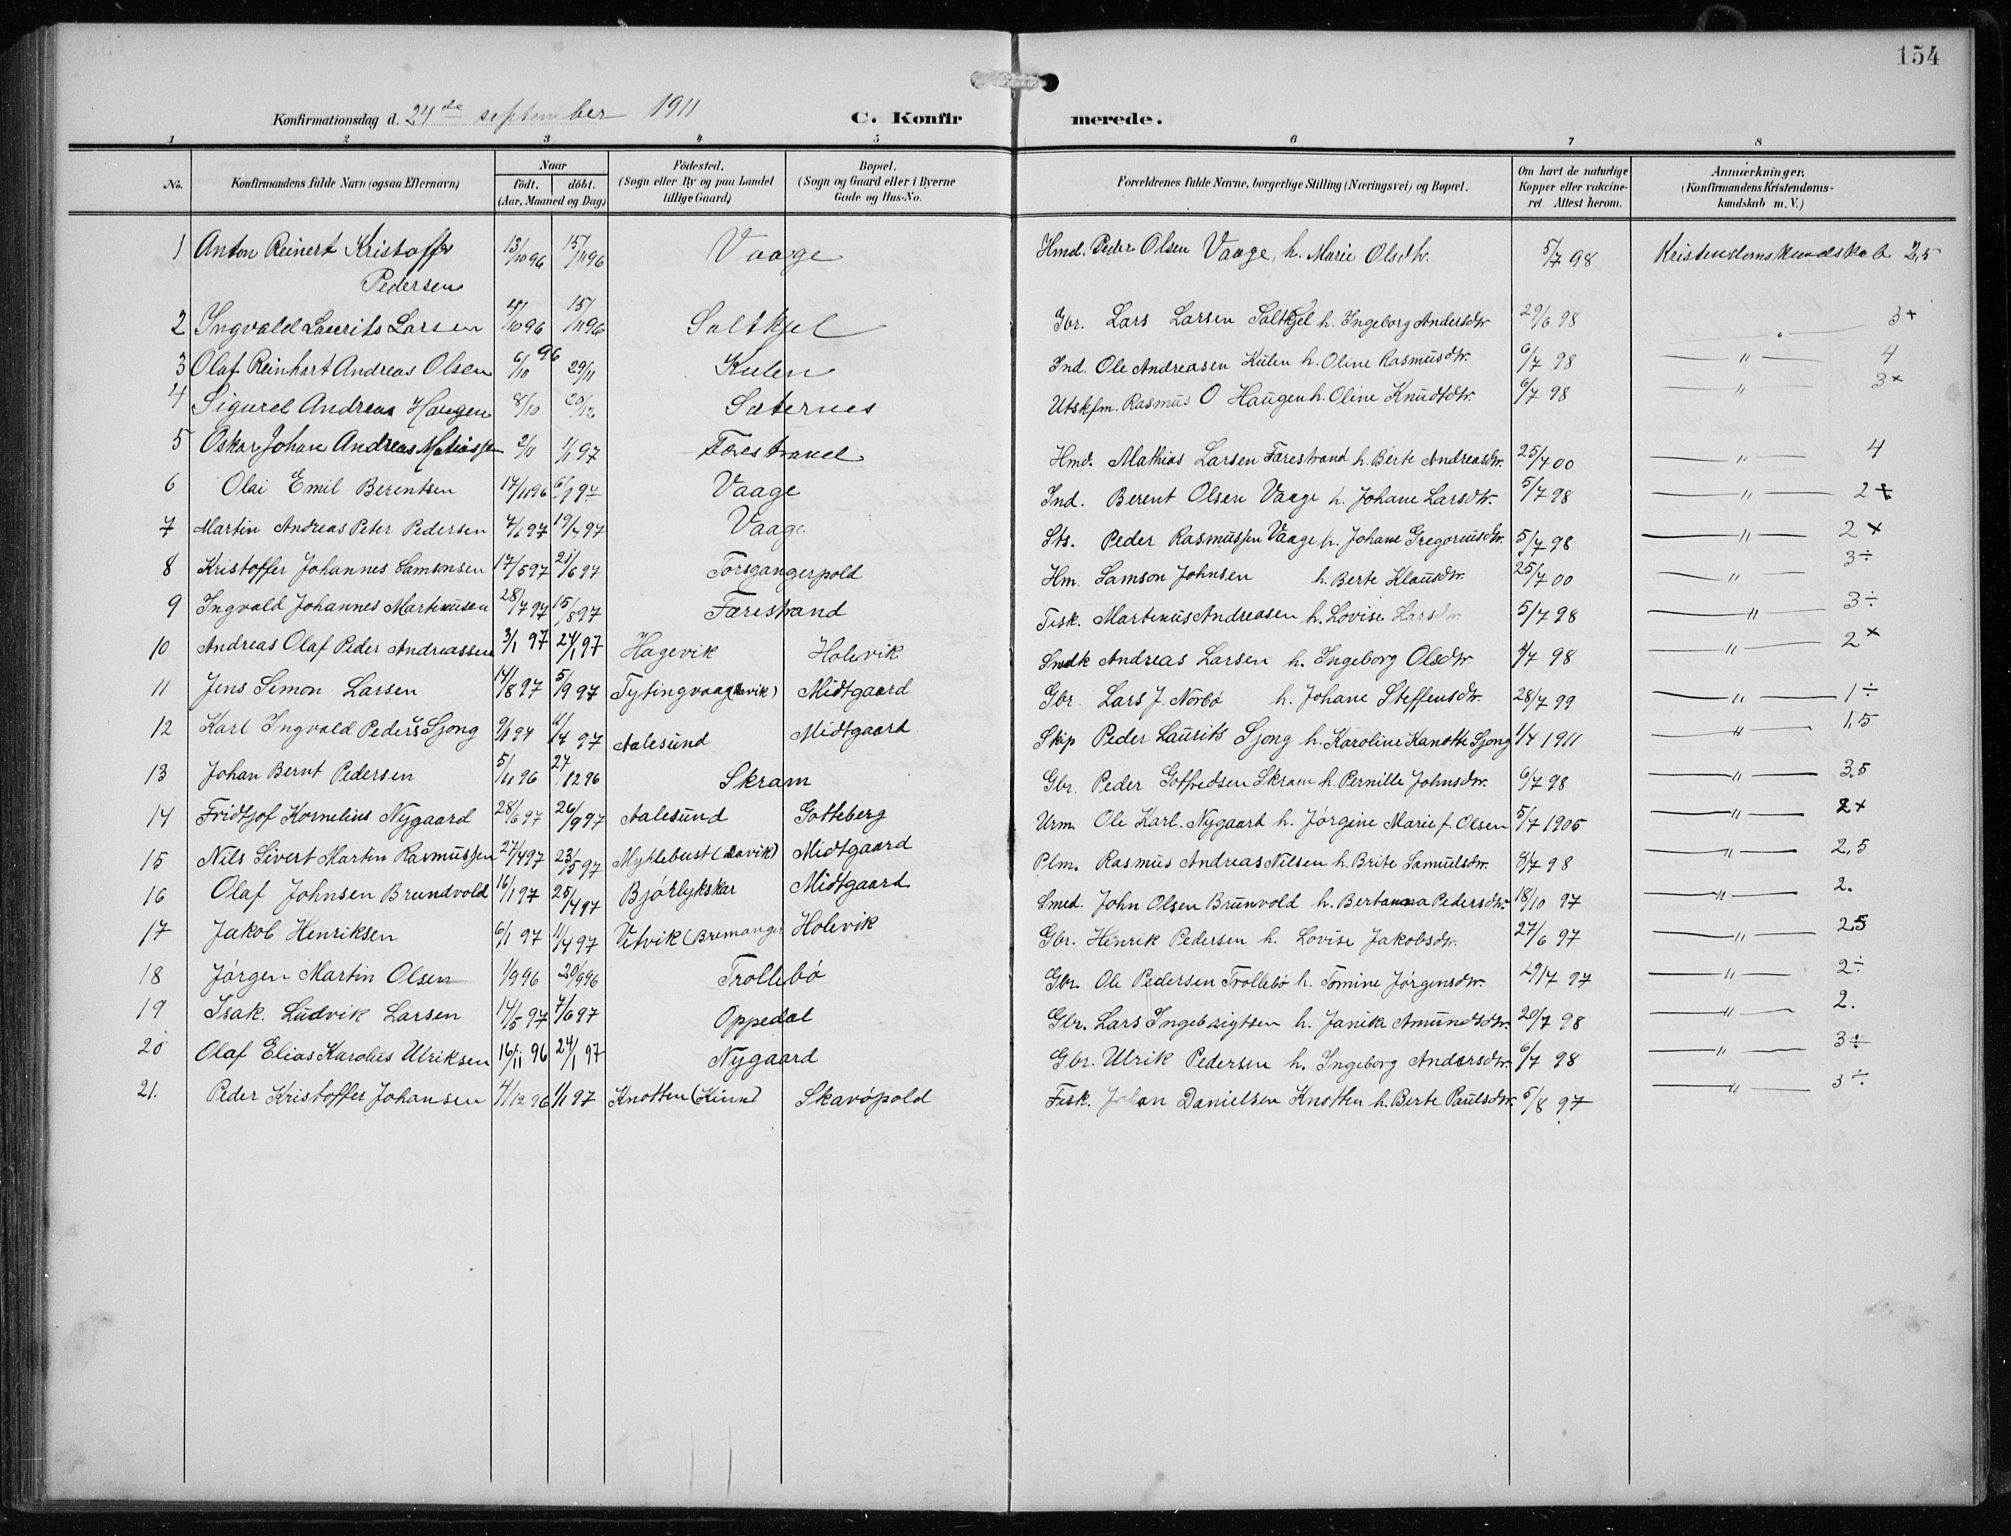 154
Konfirmationsdag d. 24de september 1911 C. Konfirmerede.
1 2 3 4 5 6 7 8
No. Konfirmandens fulde Navn (ogsaa Efternavn) Naar født. døbt. (Aar, Maaned og Dag) Fødested. (Sogn eller By og paa Landet tillige Gaard) Bopæl. (Sogn og Gaard eller i Byerne Gade og Hus-No. Forældrenes fulde Navne, borgerlige Stilling (Næringsvei) og Bopæl. Om havt de naturlige Kopper eller vakcineret Attest herom. Anmærkninger, (Konfirmandens Kristendomskundskab m. V.)
1 Anton Reinert Kristoffer Pedersen 13/10 96 15/11 96 Vaage Hmd. Peder Olsen Vaage, h. Marie Olsdtr. 5/7 98 Kristendomskundskab 2,5
2 Ingvald Laurits Larsen 4/10 96 15/11 96 Saltkjel Gbr. Lars Larsen Saltkjel h. Ingeborg Andersdtr 29/6 98 — " — 3+
3 Olaf Reinhart Andreas Olsen 6/10 96 29/11 Kulen Ind. Ole Andreasen Kulen h. Oline Rasmusdtr. 6/7 98 — " — 4
4 Sigurd Andreas Haugen 8/10 20/12 Sæternes Utskfm. Rasmus O Haugen h. Oline Knudtdtr. 6/7 98 — " — 3+
5 Oskar Johan Andreas Matiassen 2/11 1/1 97 Færestrand Hmd. Mathias Larsen Færestrand h. Berte Andreasdtr. 25/7 00 — " — 4
6 Olai Emil Berentsen 17/11 96 6/1 97 Vaage Ind. Berent Olsen Vaage h. Johane Larsdtr. 5/7 98 — " — 2+
7 Martin Andreas Peter Pedersen 7/6 97 19/7 97 Vaage Sts. Peder Rasmussen Vaage h. Johane Gregoriusdtr. 5/7 98 — " — 2+
8 Kristoffer Johannes Samsonsen 17/5 97 21/6 97 Torsgangerpold Hm. Samson Johnsen h. Berte Klausdtr. 25/7 00 — " — 3÷
9 Ingvald Johannes Martinusen 28/7 97 15/8 97 Færestrand Fisk. Martinus Andreasen h. Lovise Larsdtr 5/7 98 — " — 3÷
10 Andreas Olaf Peder Andreassen 3/1 97 24/1 97 Hagevik Holevik Sndk Andreas Larsen h. Ingeborg Olsdtr. 4/7 98 — " — 2+
11 Jens Simon Larsen 14/8 97 5/9 97 Tytingvaag (Davik) Midtgaard Gbr. Lars J. Norbø h. Johane Steffensdtr. 28/7 99 — " — 1÷
12 Karl Ingvald Peders Sjong 9/1 97 6/4 97 Aalesund Midtgaard Skip Peder Laurits Sjong h. Karoline Kanutte Sjong 1/4 1911 — " — 1,5
13 Johan Bernt Pedersen 5/11 96 27/12 96 Skram Gbr. Peder Gotfredsen Skram h. Pernille Johnsdtr. 6/7 98 — " — 3.5
14 Fridtjof Kornelius Nygaard 28/6 97 26/9 97 Aalesund Gotteberg Urm. Ole Karl. Nygaard h. Jørgine Marie f. Olsen 5/7 1905 — " — 2+
15 Nils Sivert Martin Rasmussen 27/4 97 23/5 97 Myklebust (Davik) Midtgaard Plm. Rasmus Andreas Nilsen h. Brite Samuelsdtr. 8/7 98 — " — 2,5
16 Olaf Johnsen Brundvold 16/1 97 25/4 97 Bjørlykskar Midtgaard Smed. John Olsen Brunvold h. Bertanna Pedersdtr 18/10 97 — " — 2.
17 Jakob Henriksen 6/1 97 11/4 97 Vetvik (Bremanger Holevik Gbr. Henrik Pedersen h. Lovise Jakobsdtr. 27/6 97 — " — 2,5
18 Jørgen Martin Olsen 1/9 96 20/9 96 Trollebø Gbr. Ole Pedersen Trollebø h. Tomine Jørgensdtr. 29/7 97 — " — 2÷
19 Isak. Ludvik Larsen 14/5 97 7/6 97 Oppedal Gbr. Lars Ingebrigtsen h. Janike Amundsdtr. 20/7 98 — " — 2.
20 Olaf Elias Karolius Ulriksen 16/11 96 24/1 97 Nygaard Gbr. Ulrik Pedersen h. Ingeborg Andersdtr. 6/7 98 — " — 3÷
21. Peder Kristoffer Johansen 4/12 96 1/1 97 Knotten (Kinn) Skavøpold Fisk. Johan Danielsen Knotten h. Berte Paulsdtr. 5/8 97 — " — 3÷